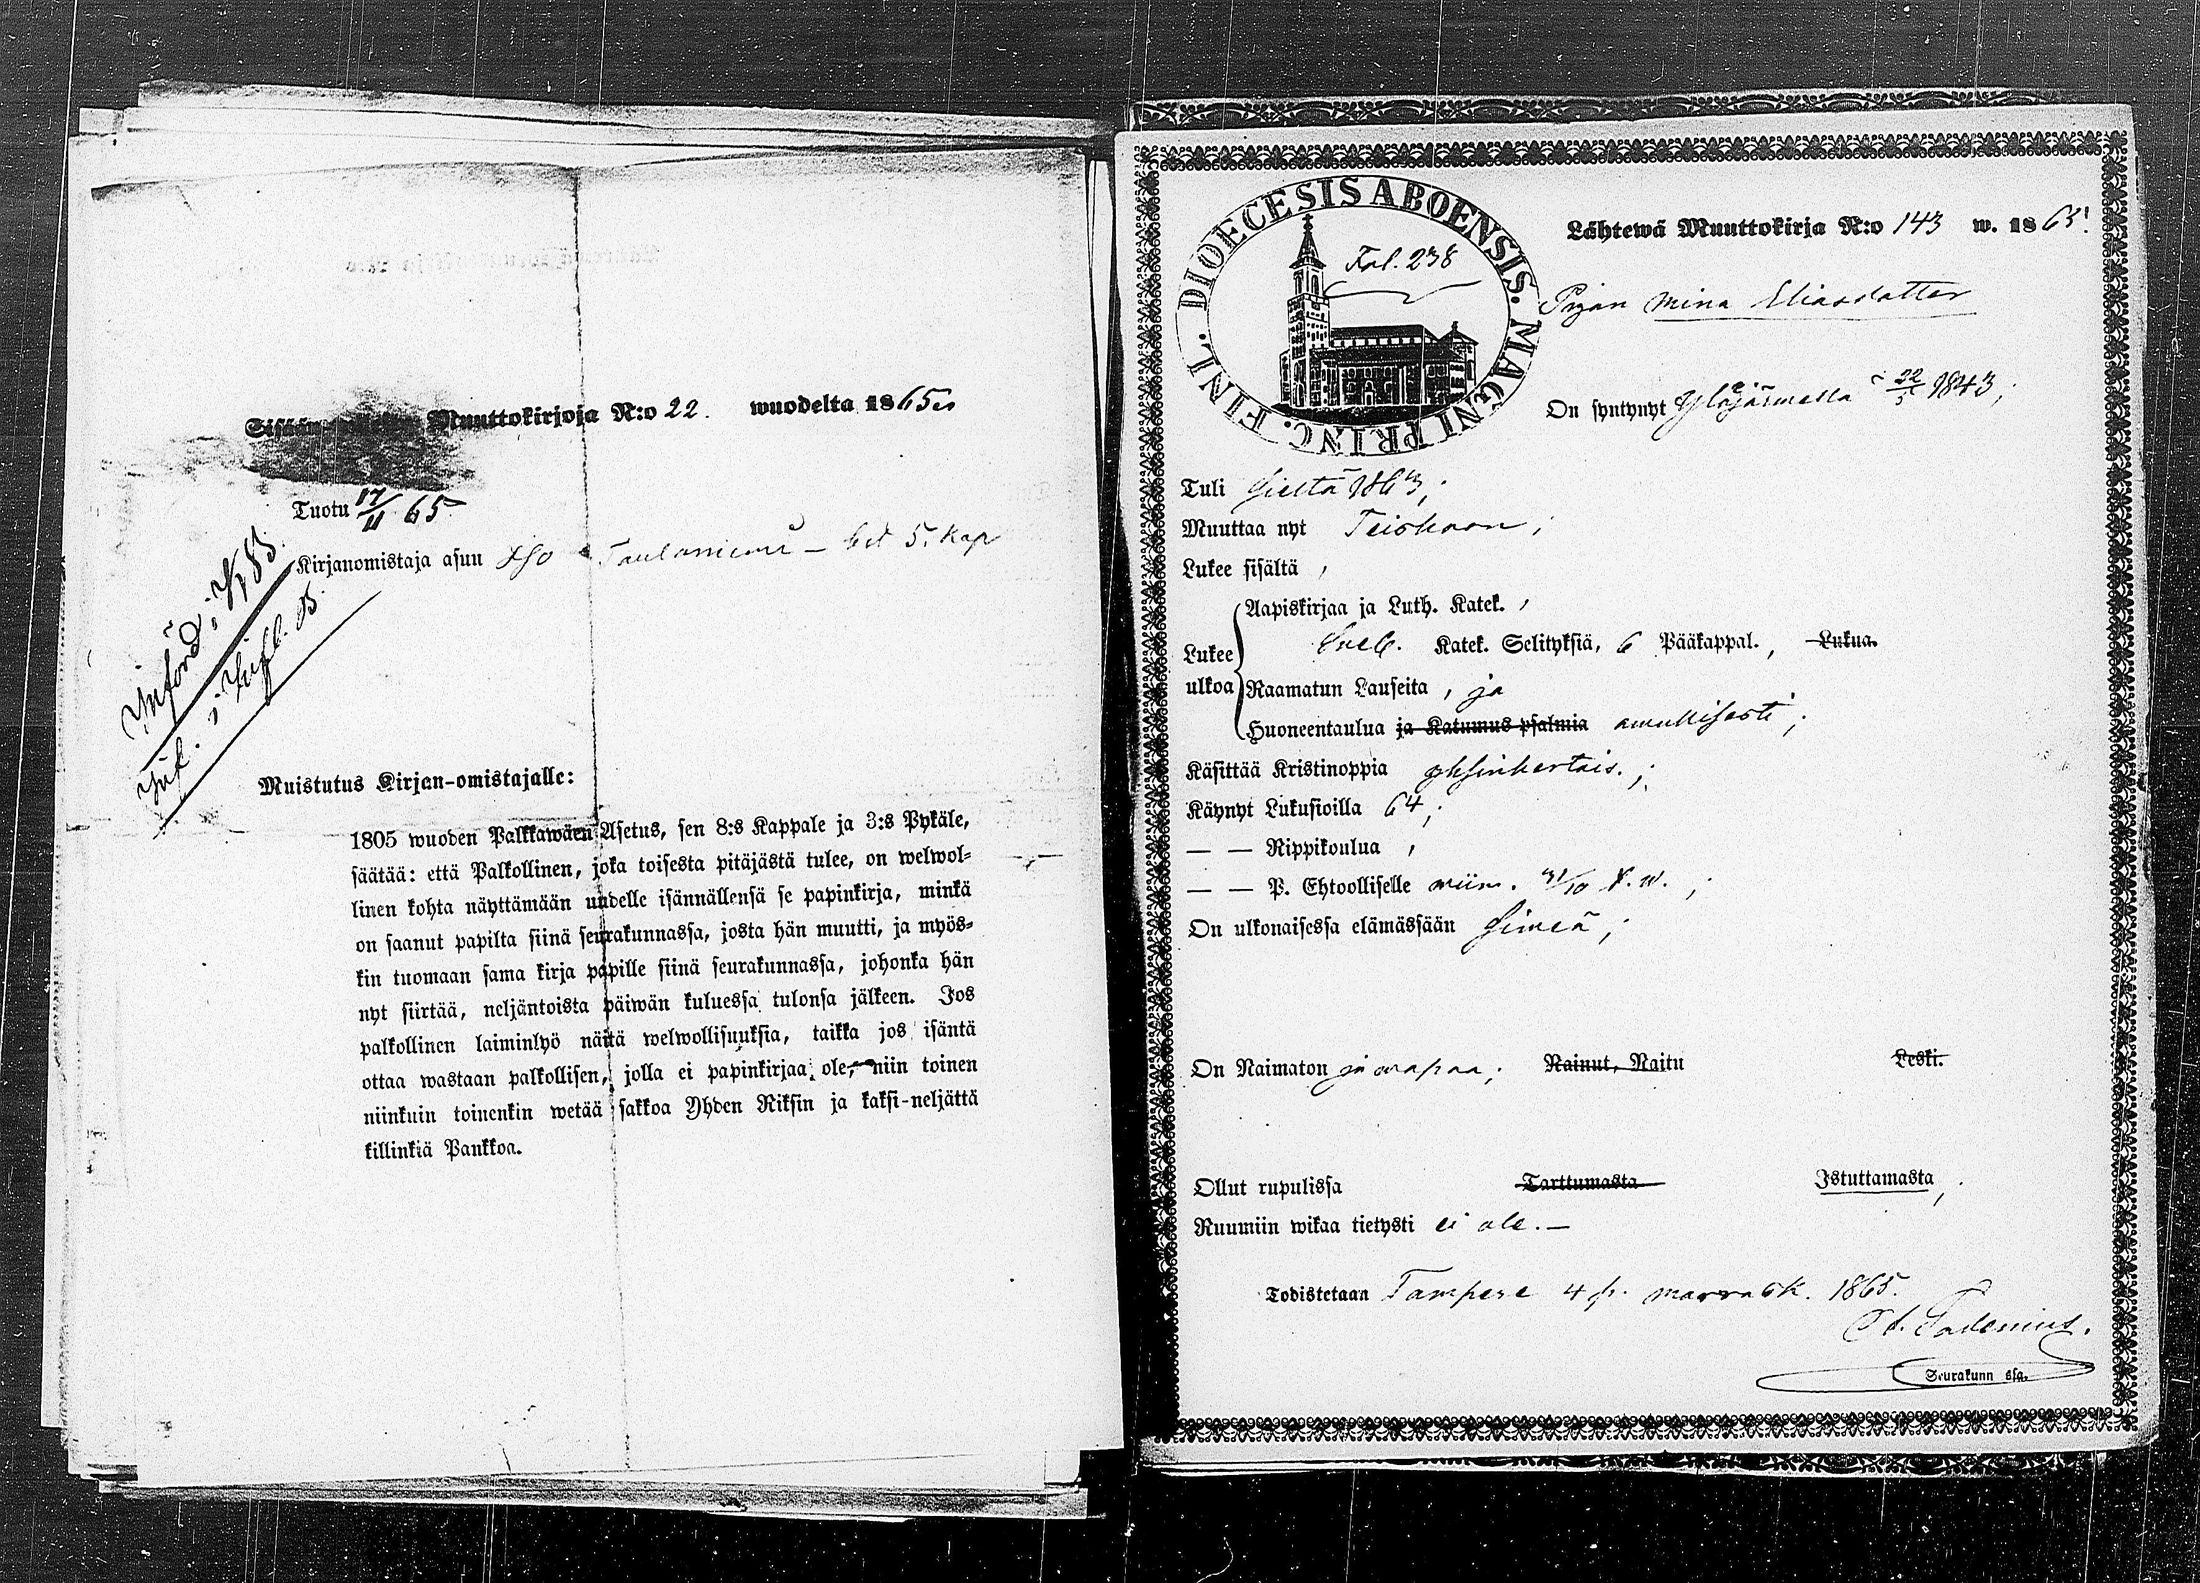 Muuttokirjoja N:o 22. wuodelta 1865
Tuotu 17/11 65
Kirjanomistaja asuu
Införd i
Muistutus Kirjan-omistajalle:
1805 wuoden Palkkawäen Asetus, sen 8:s Kappale ja 3:s Pykäle,
säätää: että Palkollinen, joka toisesta pitäjästä tulee, on welwol-
linen kohta näyttämään uudelle isännällensä se papinkirja, minkä
on saanut papilta siinä seurakunnassa, josta hän muutti, ja myös-
kin tuomaan sama kirja papille siinä seurakunnassa, johonka hän
nyt siirtää, neljäntoista päiwän kuluessa tulonsa jälkeen. Jos
palkollinen laiminlyö näitä welwollisuuksia, taikka jos isäntä
ottaa wastaan palkollisen, jolla ei papinkirjaa ole, niin toinen
niinkuin toinenkin wetää sakkoa Yhden Riksin ja kaksi-neljättä
killinkiä Pankkoa.
DIOECESIS ABOENSIS. MAGNI PRINC. FINL.
Fol. 238
Lähtewä Muuttokirja N:o 143 w. 1865.
Pigan Mina Eliasdotter
On syntynyt Ylöjärwellä 1843,
Tuli sieltä 1863;
Muuttaa nyt Teiskoon;
Lukee sisältä,
Aapiskirjaa ja Luth. Katek.,
Lukee ulkoa Sueb. Katek. Selityksiä, 6 Pääkappal., Lukua.
Raamatun Lauseita, ja
Huoneentaulua ja Katumus psalmia
Käsittää Kristinoppia yksinkertais.;
Käynyt Lukusioilla 64;
— — Rippikoulua,
— — P. Ehtoolliselle wiim.
On ulkonaisessa elämässään siweä;
On Naimaton ja wapaa; Nainut, Naitu Leski.
Ollut rupulissa Tarttumasta Istuttamasta,
Ruumiin wikaa tietysti ei ole. —
Todistetaan Tampere 4 p. marrask. 1865.
Seurakunn ssa.